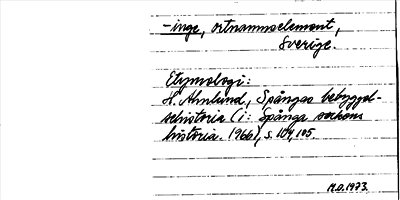 -inge, ortnamnselement,
Sverige.
Etymologi:
H. Ahnlund, Spångas bebyggel-
sehistoria (i: Spånga sockens
historia. 1966), s. 104, 105.
M.O. 1973.